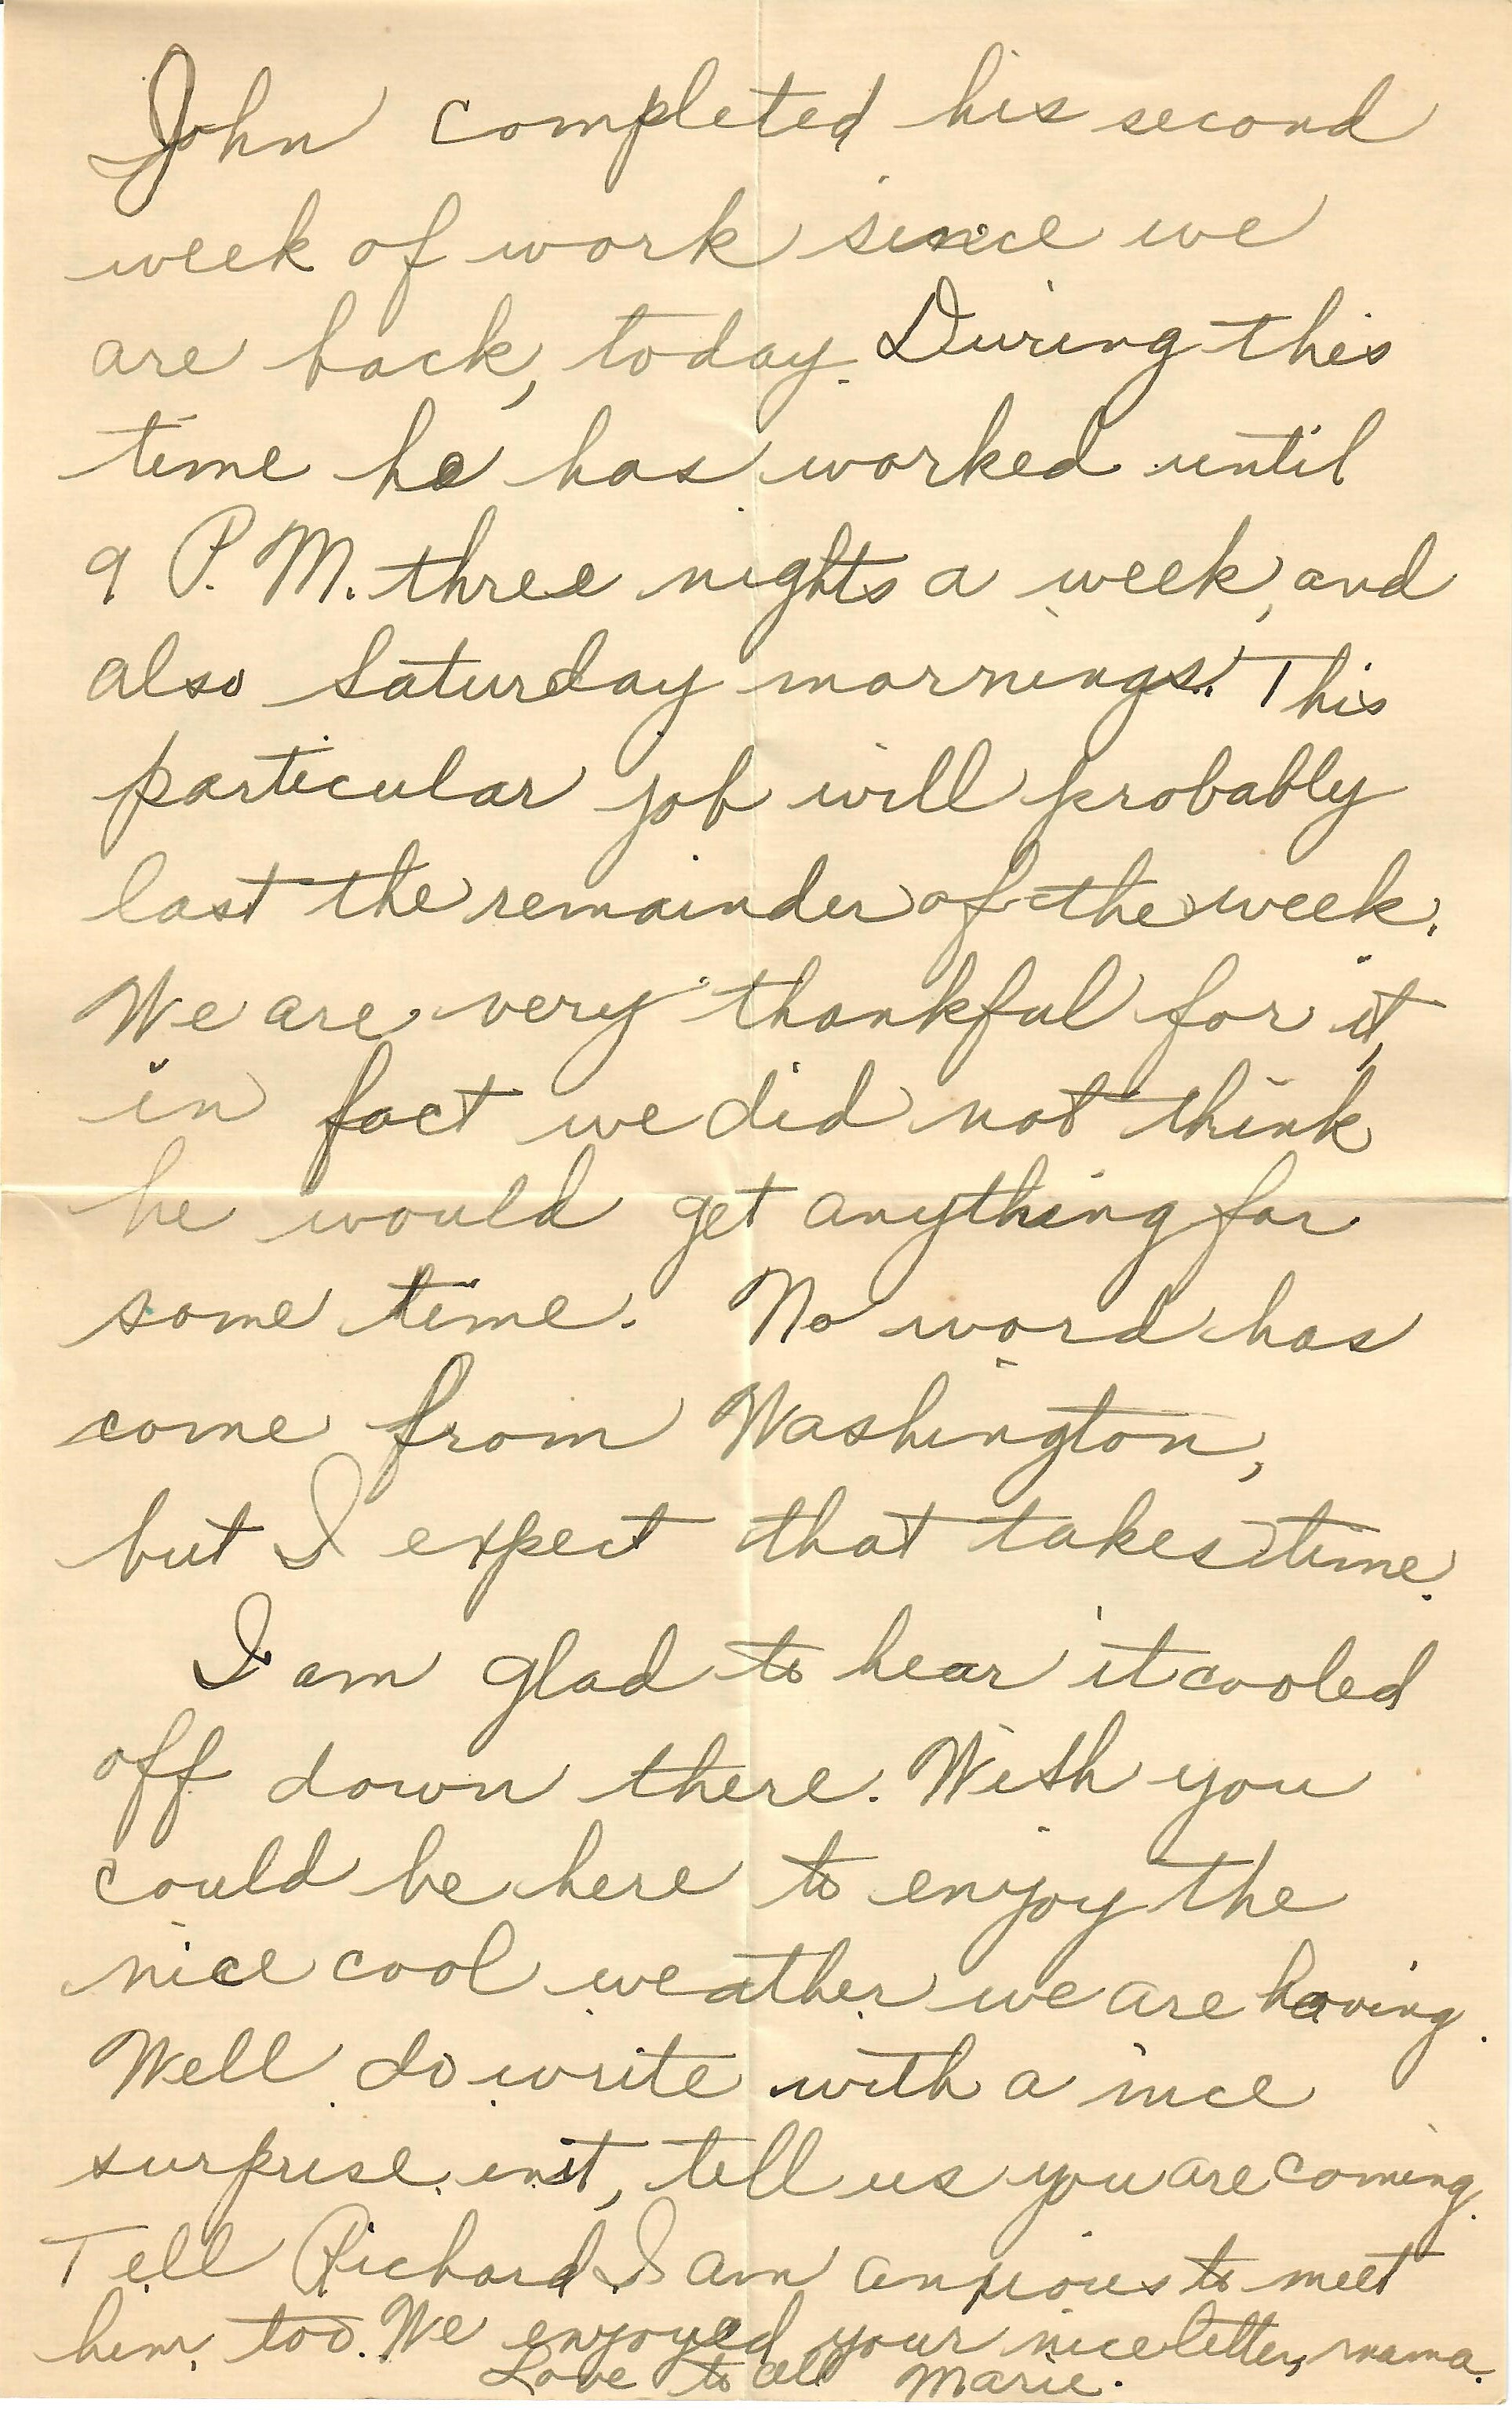 John completed his second
week of work since we
are back, today. During this
time he has worked until
9 P.M. three nights a week, and
also Saturday mornings. This
particular job will probably
last the remainder of the week.
We are very thankful for it,
in fact we did not think
he would get anything for
some time. No word has
come from Washington,
but I expect that takes time.
I am glad to hear it cooled
off down there. Wish you
could be here to enjoy the
nice cool weather we are having.
Well do write with a nice
surprise in it, tell us you are coming.
Tell Richard I am anxious to meet
him, too. We enjoyed your nice letter, mama.
Love to all Marie.